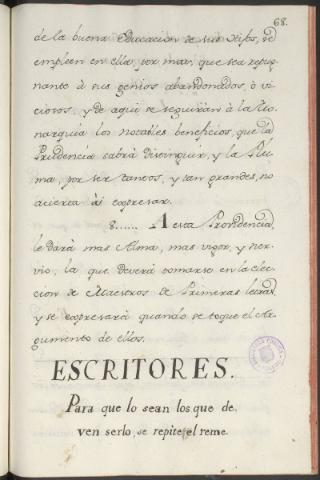 68.
de la buena educacion de sus Hijos, se
empleen en ella, por mas, que sea repug
nante à sus genios abandonados, ò vi
ciosos, y de aqui se seguiràn à la Mo
narquia los notables beneficios, que la
Prudencia sabrà distinguir, y la Plu
ma, por ser tantos, y tan grandes, no
acierta à expresar.
8...... A esta Providencia
le darà mas Alma, mas vigor, y ner
vio, la que deverà tomarse en la elec
cion de Maestros de Primeras letras,
y se expresarà quando se toque el Ar
gumento de ellos.
ESCRITORES.
Para que lo sean los que de
ven serlo, se repite el reme